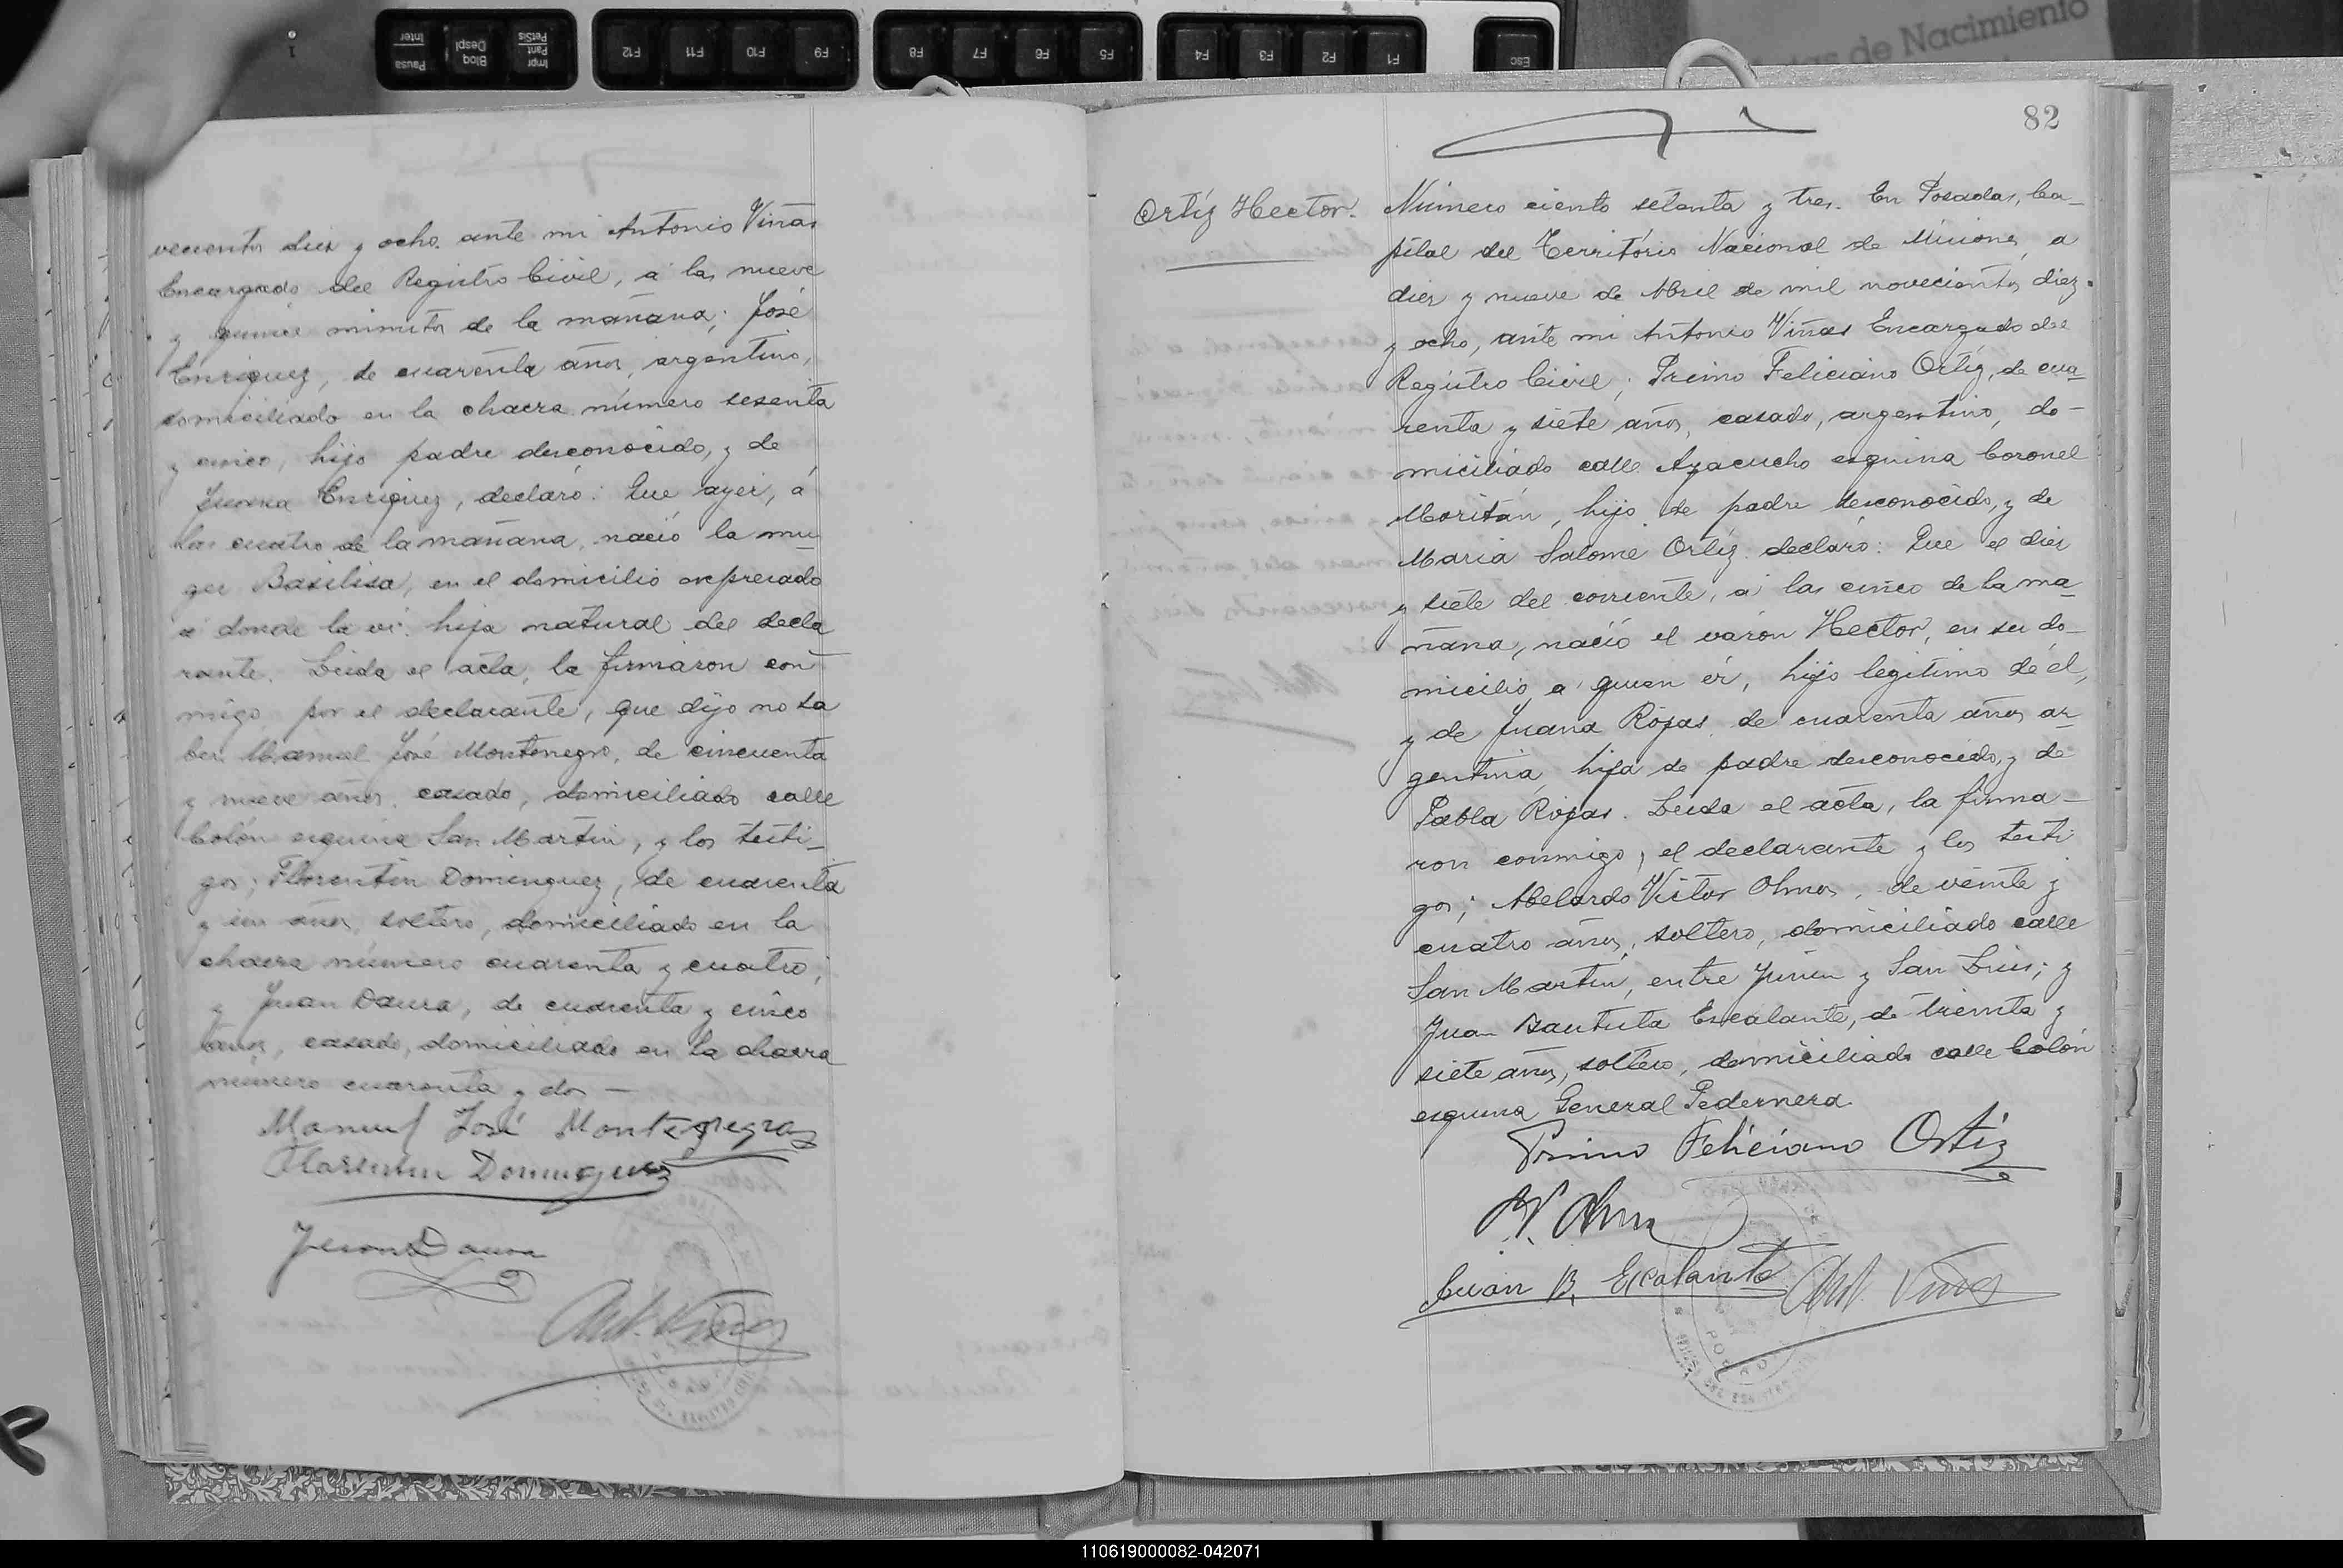 Pausa
Inter
Bloq
Despl
Impr
Pant
PetSis
F12
F11
F10
F9
F8
F7
F6
F5
F4
F3
F2
F1
Esc
de Nacimiento
vecientos diez y ocho. ante mi Antonio Viñas
Encargado del Registro Civil, á las nueve
y quince minutos de la mañana; José
Enriquez, de cuarenta años, argentino,
domiciliado en la chacra número sesenta
y cinco, hijo padre desconocido, y de
Juana Enriquez, declaró: Que ayer, á
las cuatro de la mañana, nació la mu-
ger Basilisa, en el domicilio expresado
a donde la vi. hija natural del decla
rante. Leida el acta, la firmaron con-
migo, por el declarante, que dijo no sa
ber Manuel José Montenegro, de cincuenta
y nueve años, casado, domiciliado calle
Colón esquina San Martin, y los testi-
gos; Florentin Dominguez, de cuarenta
y un años, soltero, domiciliado en la
chacra número cuarenta y cuatro;
y Juan Daura, de cuarenta y cinco
años, casado, domiciliado en la chacra
número cuarenta y dos —
Manuel José Montenegro
Florentin Dominguez
Juan Daura
Ant. Viñas
82
Ortíz Hector.
Número ciento setenta y tres. En Posadas, Ca-
pital del Território Nacional de Misiones, a
diez y nueve de Abril de mil novecientos diez
y ocho, ante mi Antonio Viñas Encargado del
Registro Civil; Primo Feliciano Ortíz, de cua-
renta y siete años, casado, argentino, do-
miciliado calle Ayacucho esquina Coronel
Moritán, hijo de padre desconocido, y de
Maria Salomé Ortíz. declaró: Que el diez
y siete del corriente, a las cinco de la ma-
ñana, nació el varón Hector, en su do-
micilio a quien ví, hijo legitimo de él,
y de Juana Rojas, de cuarenta años ar-
gentina, hija de padre desconocido, y de
Pabla Rojas. Leida el acta, la firma-
ron conmigo, el declarante y los testi
gos; Abelardo Victor Olmos, de veinte y
cuatro años, soltero, domiciliado calle
San Martin, entre Junin y San Luis; y
Juan Bautista Escalante, de treinta y
siete años, soltero, domiciliado calle Colón
esquina General Pedernera.
Primo Feliciano Ortiz
A. V. Olmos
Juan B. Escalante
Ant. Viñas
POSADAS
110619000082-042071